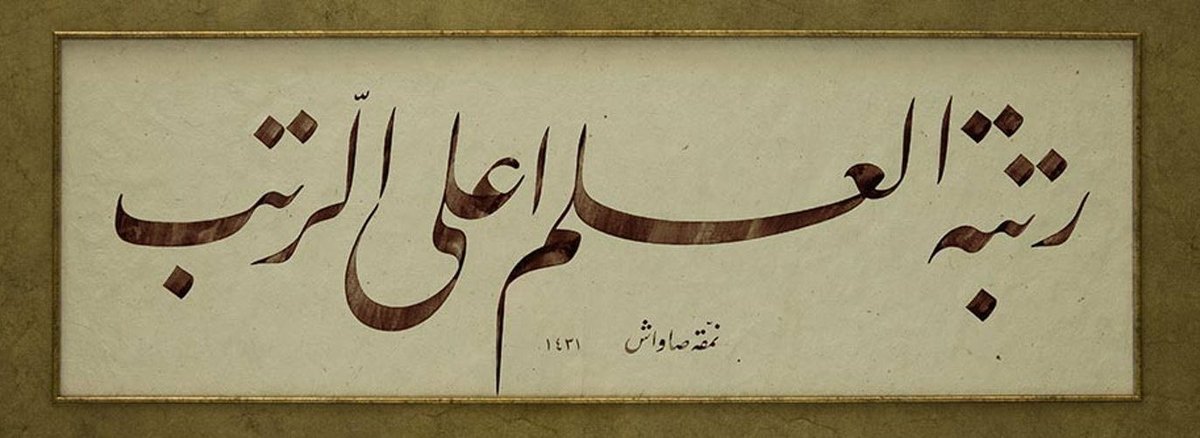 رتبة العلم اعلى الرّتب
نمّقه صاواش ١٤٣١